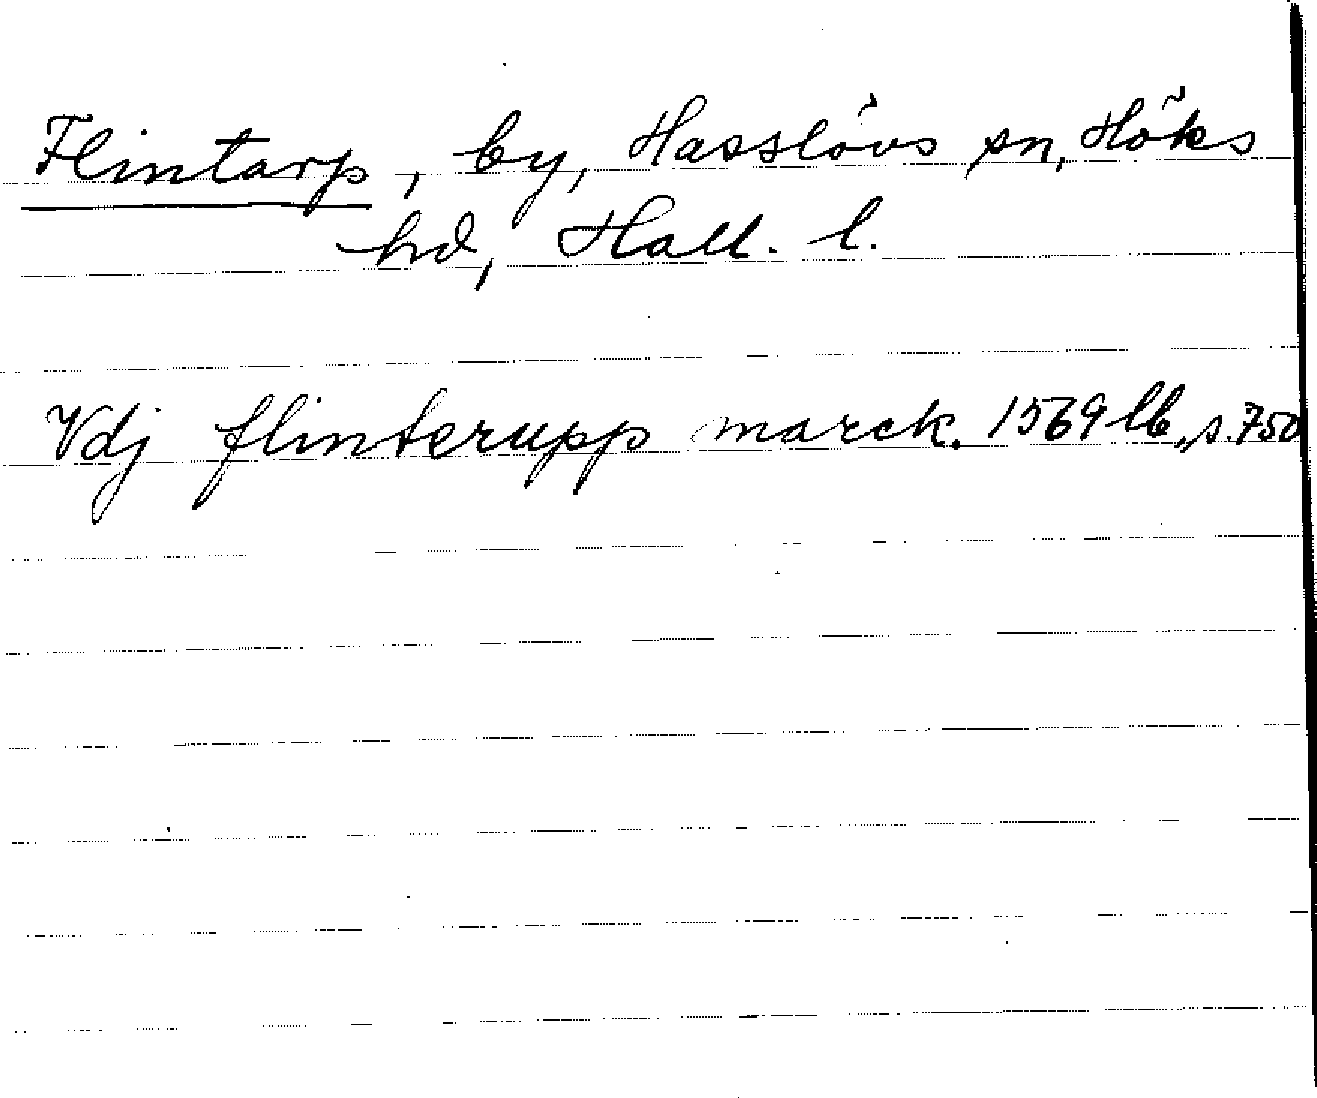 Flintarp, by, Hasslövs sn, Höks
hd, Hall. l.
Vdj flinterupp marck. 1569 lb, s. 750